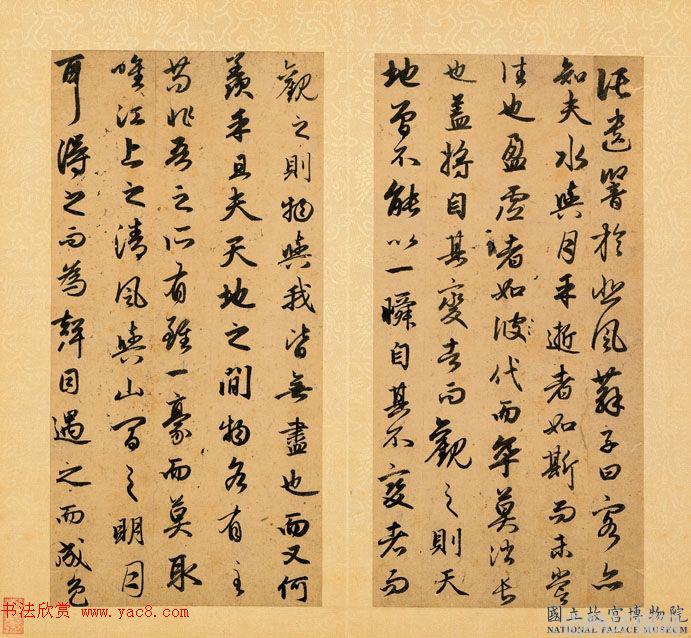 託遺響於悲風蘓子曰客亦
知夫水與月乎逝者如斯而未嘗
往也盈虛者如彼代而卒莫消長
也盖將自其變者而觀之則天
地曾不能以一瞬自其不變者而
觀之則物與我皆無盡也而又何
羨乎且夫天地之間物各有主
苟非吾之所有雖一豪而莫取
唯江上之清風與山間之明月
耳得之而為聲目遇之而成色
书法欣赏 www.yac8.com
國立故宮博物院
NATIONAL PALACE MUSEUM